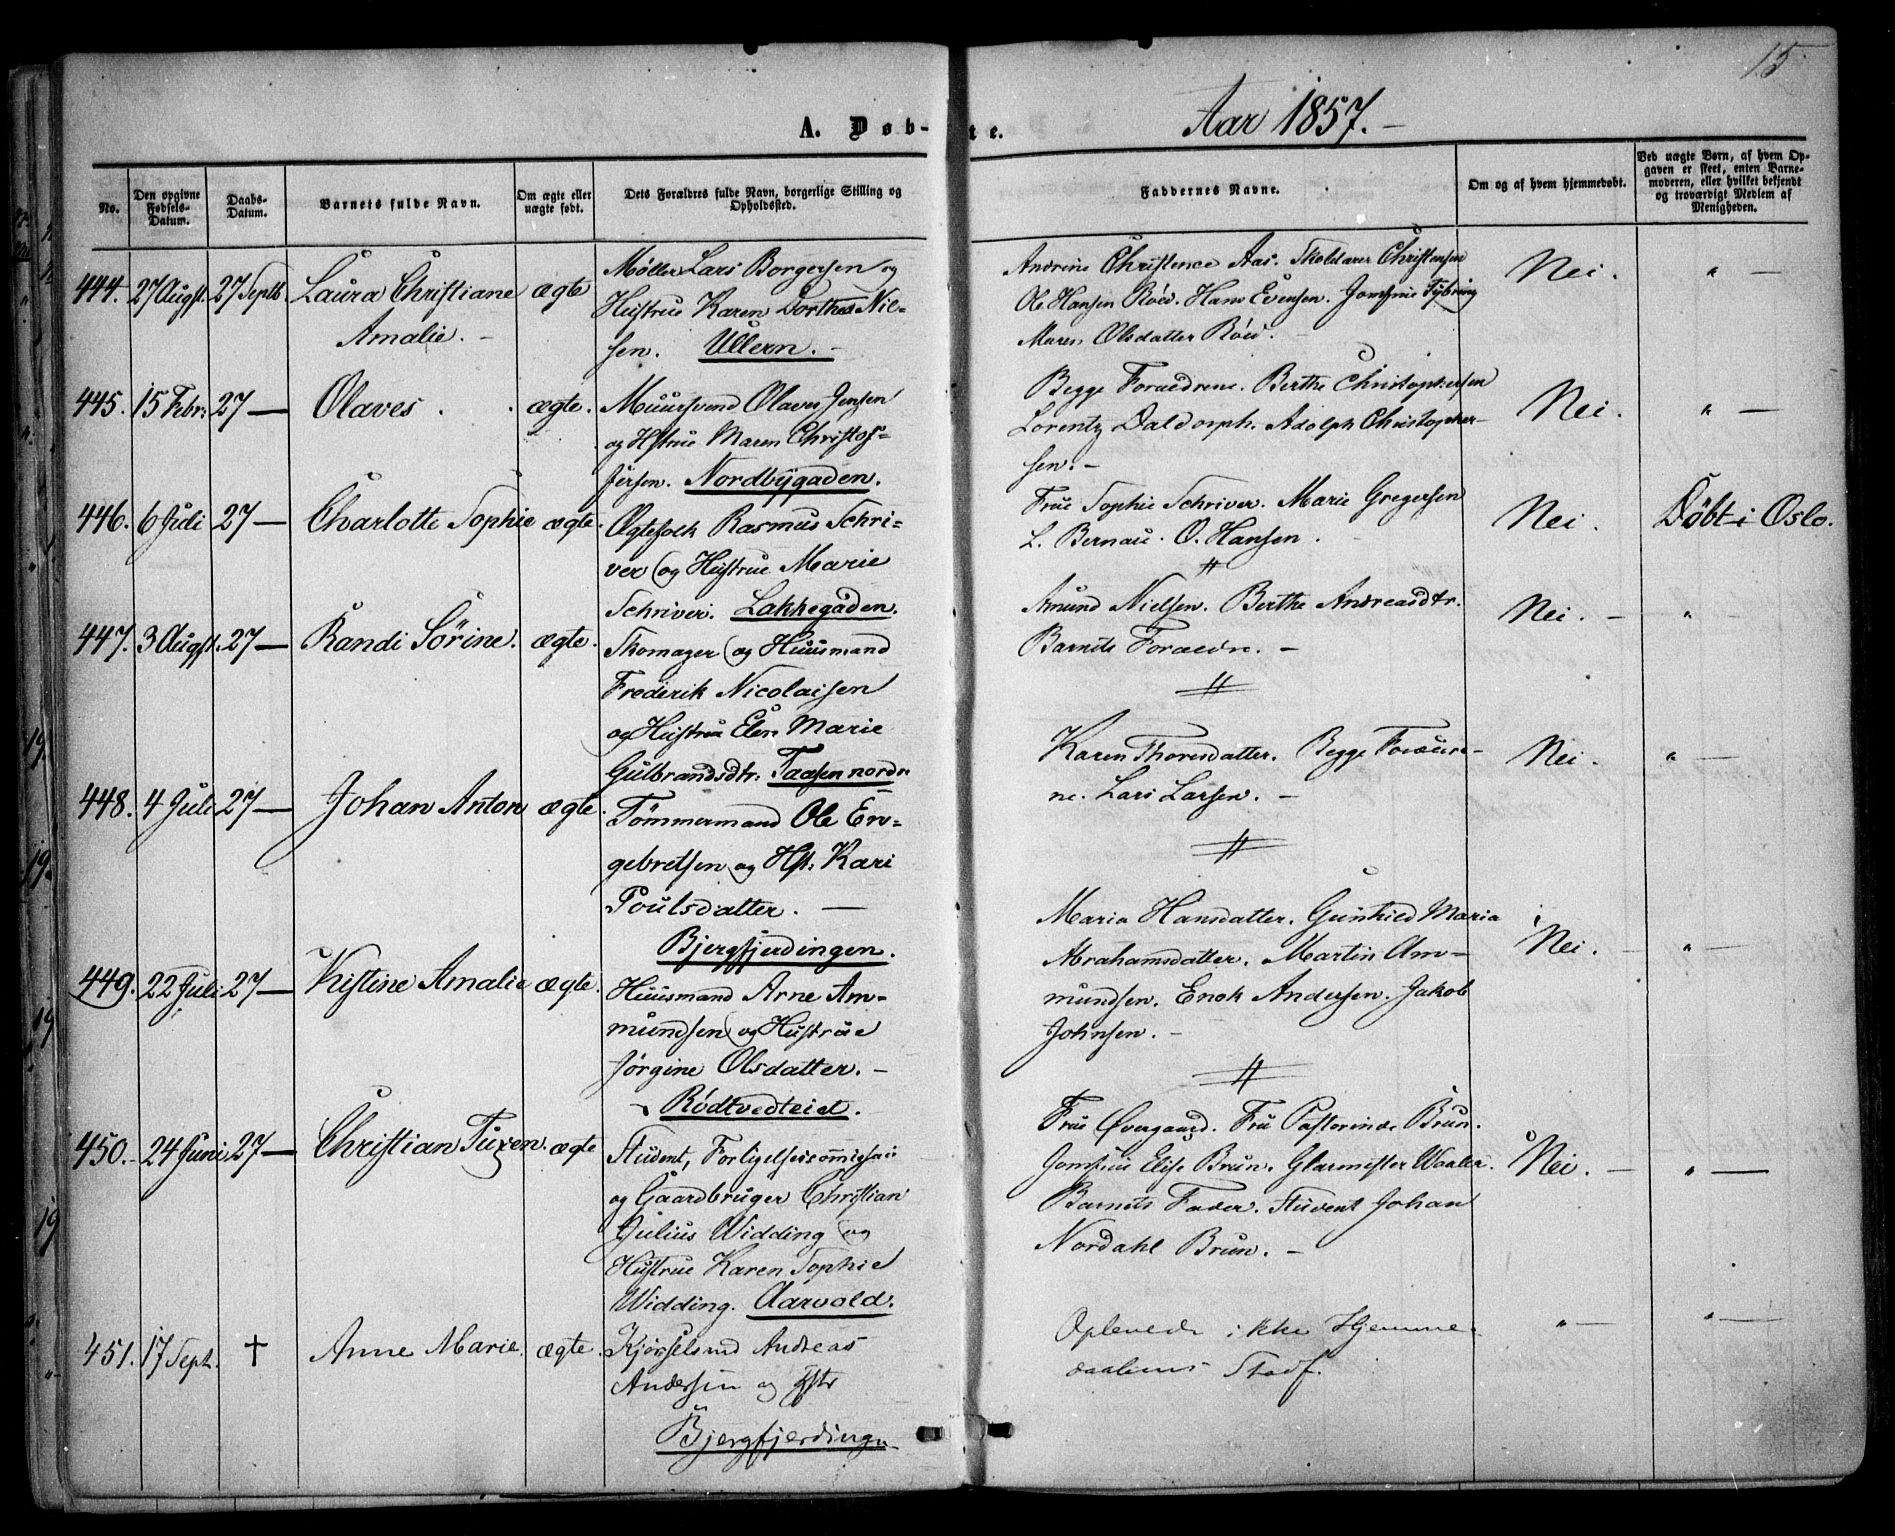 15
Aar 1857.-
A. Døb-te.
No.
Den opgivne Fødsels-Datum.
Daabs-Datum.
Barnets fulde Navn.
Om ægte eller uægte født.
Dets Forældres fulde Navn, borgerlige Stilling og Opholdssted.
Faddernes Navne.
Om og af hvem hjemmedøbt.
Ved uægte Børn, af hvem Opgaven er skeet, enten Barnemoderen, eller hvilket bekjendt og troværdigt Medlem af Menigheden.
444. 27 Augst. 27 Septb Laura Christiane ægte
Amalie. -
Møller Lars Borgersen og
Hustrue Karen Dorthea Niel-
sen. Ullern. -
Andrine Christence Aas. Skoldarer Christensen
Ole Hansen Röed. Hans Evensen. Jomfrue Fybring
Maren Olsdatter Röed. -
Nei. " —
445. 15 Febr: 27 — Olaves . ægte.
Muursvend Olaves Jensen
og Hstrue Maren Christof-
fersen. Nordbygaden.
Begge Foraeldrene. Berthe Christophersen
Lorentz Daldorph. Adolph Christopher-
sen. -
Nei. " —
446. 6 Juli 27 — Charlotte Sophie ægte.
Ægtefolk Rasmus Schri-
ver og Hustrue Marie
Schriver. Lakkegaden.
Frue Sophie Schriver. Marie Gregersen
L. Bernau. O. Hansen.
Nei. Döbt i Oslo.
447. 3 Augst. 27 — Randi Sörine. ægte.
Skomager og Huusmand
Frederik Nicolaisen
og Hustrue Elen Marie
Gulbrandsdtr: Taasen nordr
Amund Nielsen. Berthe Andreasdtr.
Barnets Foraeldre. -
Nei. - "
448. 4 Juli 27 — Johan Anton ægte.
Tömmermand Ole En-
gebretsen og Hst: Kari
Poulsdatter. —
Bjergfjerdingen.
Karen Thoresdatter. Begge Foraeldre-
ne. Lars Larsen. -
Nei. " —
449. 22 Juli 27 — Kistine Amalie ægte.
Huusmand Arne Am-
mundsen og Hustrue
Jörgine Olsdatter. -
Rödtvedteiet.
Maria Hansdatter. Gunhild Maria
Abrahamsdatter. Martin Am-
mundsen. Enok Andersen. Jakob
Johnsen. -
Nei. - " —
450. 24 Juni 27 — Christian Tuxen. ægte
Student, Forligelsescommissair
og Gaardbruger Christian
Julius Widding og
Hustrue Karen Sophie
Widding. Aarvold.
Frue Øvergaard. Fru Pastorinde Brun.
Jomfrue Elise Brun. Glarmester Waaler.
Barnets Fader. Student Johan
Nordahl Brun. -
Nei. — " —
451. 17 Sept. † Anne Marie. ægte.
Kjörselsmd Andreas
Andersen og Hstr
Bjergfjerdingn
Oplevede ikke Hjemme-
daabens Stadf.
" — " —